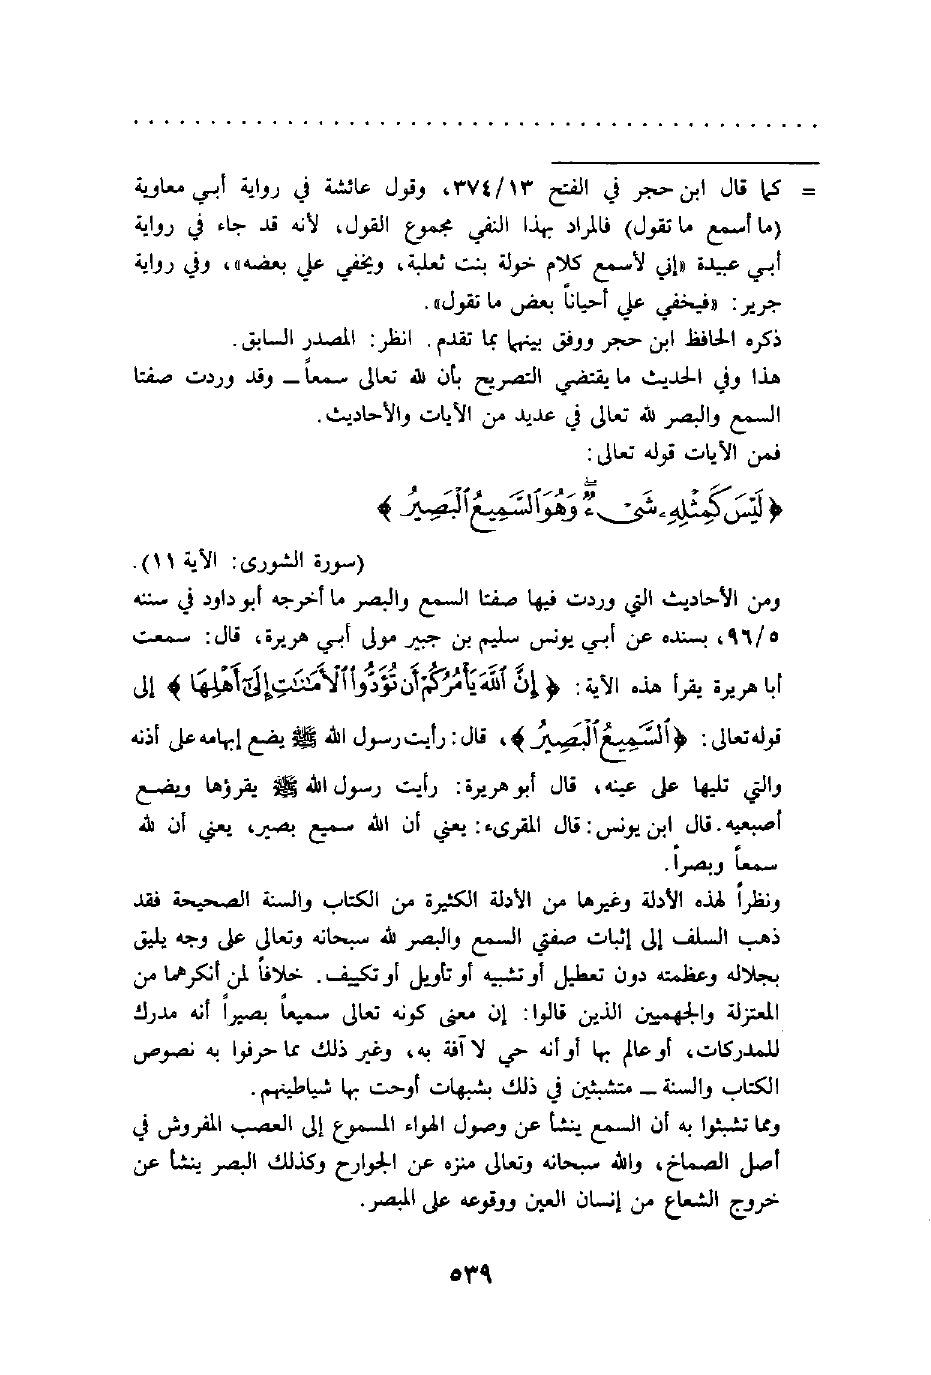 = كما قال ابن حجر في الفتح ٣٧٤/١٣، وقول عائشة في رواية أبي معاوية
(ما أسمع ما تقول) فالمراد بهذا النفي مجموع القول، لأنه قد جاء في رواية
أبي عبيدة «إني لأسمع كلام خولة بنت ثعلبة، ويخفي علي بعضه»، وفي رواية
جرير: «فيخفي علي أحياناً بعض ما تقول».
ذكره الحافظ ابن حجر ووفق بينهما بما تقدم. انظر: المصدر السابق.
هذا وفي الحديث ما يقتضي التصريح بأن لله تعالى سمعاً ــ وقد وردت صفتا
السمع والبصر لله تعالى في عديد من الآيات والأحاديث.
فمن الآيات قوله تعالى:
﴿ لَيْسَ كَمِثْلِهِۦ شَىْءٌ ۖ وَهُوَ ٱلسَّمِيعُ ٱلْبَصِيرُ ﴾
(سورة الشورى: الآية ١١).
ومن الأحاديث التي وردت فيها صفتا السمع والبصر ما أخرجه أبو داود في سننه
٩٦/٥، بسنده عن أبي يونس سليم بن جبير مولى أبي هريرة، قال: سمعت
أبا هريرة يقرأ هذه الآية: ﴿ إِنَّ ٱللَّهَ يَأْمُرُكُمْ أَن تُؤَدُّواْ ٱلْأَمَٰنَٰتِ إِلَىٰٓ أَهْلِهَا ﴾ إلى
قوله تعالى: ﴿ ٱلسَّمِيعُ ٱلْبَصِيرُ ﴾، قال: رأيت رسول الله ﷺ يضع إبهامه على أذنه
والتي تليها على عينه، قال أبو هريرة: رأيت رسول الله ﷺ يقرؤها ويضع
أصبعيه. قال ابن يونس: قال المقرىء: يعني أن الله سميع بصير، يعني أن لله
سمعاً وبصراً.
ونظراً لهذه الأدلة وغيرها من الأدلة الكثيرة من الكتاب والسنة الصحيحة فقد
ذهب السلف إلى إثبات صفتي السمع والبصر لله سبحانه وتعالى على وجه يليق
بجلاله وعظمته دون تعطيل أو تشبيه أو تأويل أو تكييف. خلافاً لمن أنكرهما من
المعتزلة والجهميين الذين قالوا: إن معنى كونه تعالى سميعاً بصيراً أنه مدرك
للمدركات، أو عالم بها أو أنه حي لا آفة به، وغير ذلك مما حرفوا به نصوص
الكتاب والسنة ــ متشبثين في ذلك بشبهات أوحت بها شياطينهم.
ومما تشبثوا به أن السمع ينشأ عن وصول الهواء المسموع إلى العصب المفروش في
أصل الصماخ، والله سبحانه وتعالى منزه عن الجوارح وكذلك البصر ينشأ عن
خروج الشعاع من إنسان العين ووقوعه على المبصر.
٥٣٩